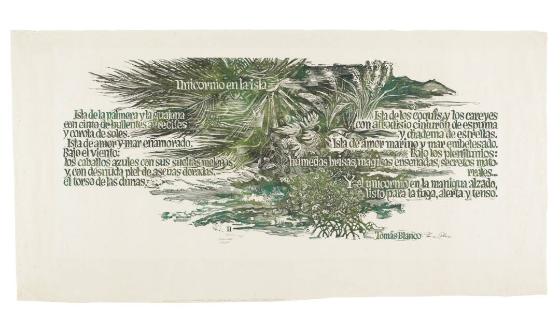 Unicornio en la isla
Isla de la palmera y la guajana
con cinto de bullentes arrecifes
y corola de soles.
Isla de amor y mar enamorado.
Bajo el viento:
los caballos azules con sus sueltas melenas;
y, con desnuda piel de ascuas doradas,
el torso de las dunas.
Isla de los coquís y los careyes
con afrodisio cinturón de espuma
y diadema de estrellas.
Isla de amor marino y mar embelesado.
Bajo los plenilunios:
húmedas brisas, mágicas ensenadas, secretos mato-
rrales...
Y el unicornio en la manigua alzado,
listo para la fuga, alerta y tenso.
Tomás Blanco